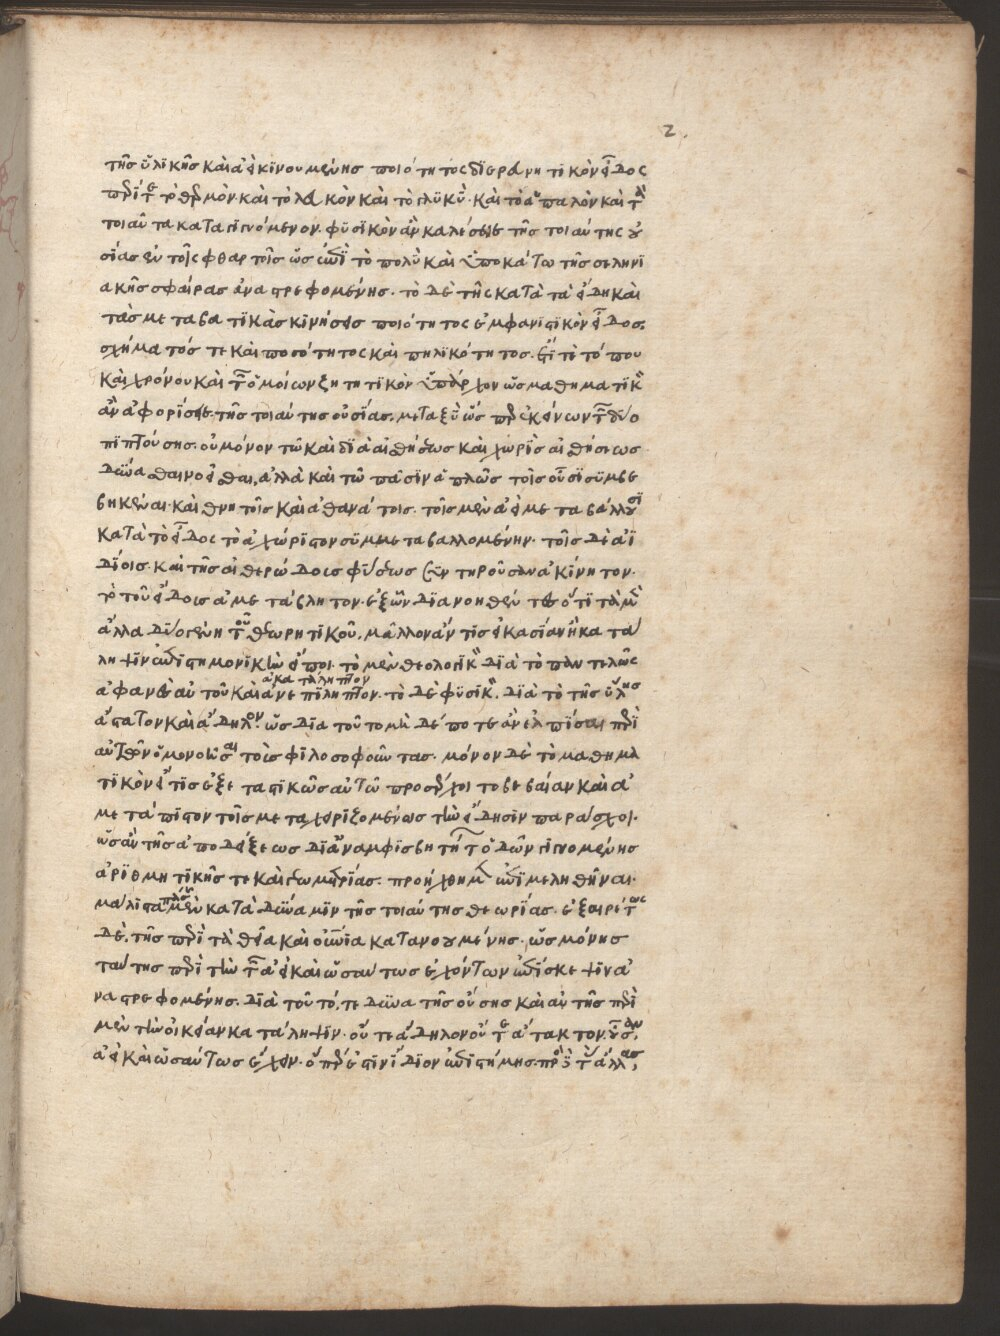 2.
τῆς ὑλικῆς καὶ ἀεὶ κινουμένης ποιότητος διερευνητικὸν εἶδος
περί τε τὸ θερμὸν καὶ τὸ λευκὸν καὶ τὸ γλυκὺ καὶ τὸ ἁπαλὸν καὶ τὰ
τοιαῦτα καταγινόμενον φυσικὸν ἂν καλέσειε τῆς τοιαύτης οὐ
σίας ἐν τοῖς φθαρτοῖς ὡς ἐπὶ τὸ πολὺ καὶ ὑποκάτω τῆς σεληνι
ακῆς σφαίρας ἀναστρεφομένης. τὸ δὲ τῆς κατὰ τὰ εἴδη καὶ
τὰς μεταβατικὰς κινήσεις ποιότητος ἐμφανιστικὸν εἶδος.
σχήματός τε καὶ ποσότητος καὶ πηλικότητος. ἔτι τε τόπου
καὶ χρόνου καὶ τῶν ὁμοίων ζητητικὸν ὑπάρχον ὡς μαθηματικὸν
ἂν ἀφορίσειε. τῆς τοιαύτης οὐσίας. μεταξὺ ὥσπερ ἐκείνων τῶν δύο
πιπτούσης. οὐ μόνον τῷ καὶ διὰ αἰσθήσεως καὶ χωρὶς αἰσθήσεως
δύνασθαι νοεῖσθαι, ἀλλὰ καὶ τῷ πᾶσιν ἁπλῶς τοῖς οὖσι συμβε
βηκέναι. καὶ θνητοῖς καὶ ἀθανάτοις. τοῖς μὲν ἀεὶ μεταβάλλουσι
κατὰ τὸ εἶδος τὸ ἀχώριστον συμμεταβαλλομένην. τοῖς δὲ ἀϊ
δίοις. καὶ τῆς αἰθερώδους φύσεως συντηροῦσαν ἀκίνητον.
τὸ τοῦ εἴδους ἀμετάβλητον. ἐξ ὧν διανοηθέντες ὅτι τὰ μὲν
ἄλλα δύο γένη τοῦ θεωρητικοῦ. μᾶλλον ἄν τις εἰκασίαν ἢ κατά
ληψιν ἐπιστημονικὴν εἴποι. τὸ μὲν θεολογικὸν διὰ τὸ παντελῶς
ἀκατάληπτον
ἀφανὲς αὐτοῦ καὶ ἀνεπίληπτον. τὸ δὲ φυσικὸν. διὰ τὸ τῆς ὕλης
ἄστατον καὶ ἄδηλον. ὡς διὰ τοῦτο μηδέποτε ἂν ἐλπίσαι περὶ
αὐτῶν ὁμονοῆσαι τοὺς φιλοσοφοῦντας. μόνον δὲ τὸ μαθημα
τικὸν εἴ τις ἐξεταστικῶς αὐτῷ προσέρχοιτο βεβαίαν καὶ ἀ
μετάπιστον τοῖς μεταχειριζομένοις τὴν εἴδησιν παράσχοι.
ὡς ἂν τῆς ἀποδείξεως δι' ἀναμφισβητήτων ὁδῶν γινομένης
ἀριθμητικῆς τε καὶ γεωμετρίας. προήχθημεν ἐπιμεληθῆναι.
μάλιστα μὲν κατὰ δύναμιν τῆς τοιαύτης θεωρίας. ἐξαιρέτως
δὲ. τῆς περὶ τὰ θεῖα καὶ οὐράνια κατανοουμένης. ὡς μόνης
ταύτης περὶ τὴν τῶν ἀεὶ καὶ ὡσαύτως ἐχόντων ἐπίσκεψιν ἀ
ναστρεφομένης. διὰ τοῦτό τε δυνατῆς οὔσης καὶ αὐτῆς περὶ
μὲν τὴν οἰκείαν κατάληψιν. οὔτε ἄδηλον οὔτε ἄτακτον οὖσαν.
ἀεὶ καὶ ὡσαύτως ἔχειν. ὅπερ ἐστὶν ἴδιον ἐπιστήμης. πρὸς δὲ τὰς ἄλλας